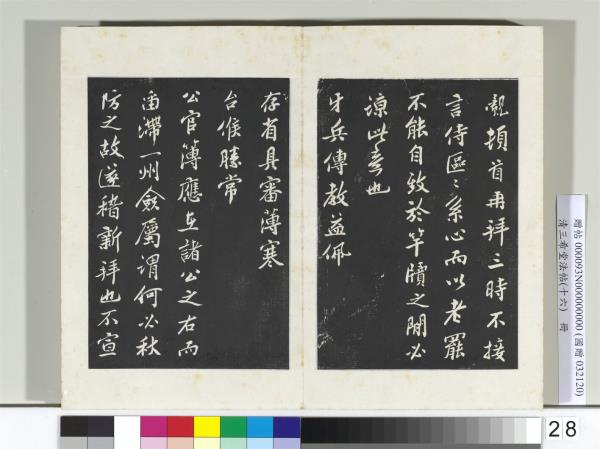 觌頓首再拜三時不接
言侍區〻系心而以老罷
不能自致於竿牘之閒必
諒此意也
牙兵傳教益佩
存省具審薄寒
台候勝常
公官簿應在諸公之右而
留滯一州僉屬謂何必秋
防之故遂稽新拜也不宣
贈帖 000093N000000000 (國贈 032120)
清三希堂法帖(十六) 冊
28